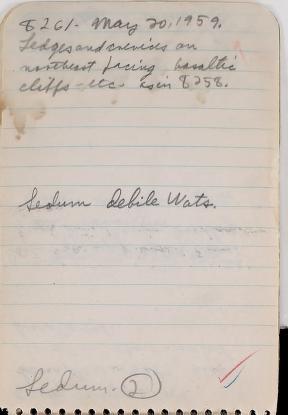 8261- May 20, 1959.
Ledges and crevices on
northeast facing basaltic
cliffs - etc. as in 8258.
Sedum debile Wats.
Sedum. 2